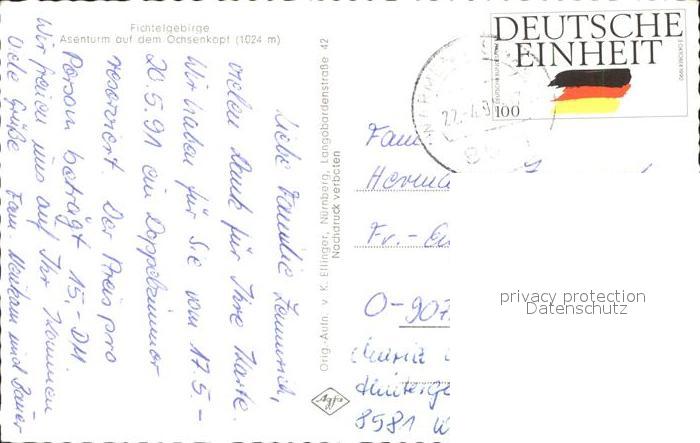 Fichtelgebirge
Asenturm auf dem Ochsenkopf (1024 m)
Liebe Familie
vielen Dank für Ihre Karte.
Wir haben für Sie vom 17.5. –
20.5.91 ein Doppelzimmer
reserviert. Der Preis pro
Person beträgt 15,- DM.
Wir freuen uns auf Ihr Kommen
Viele Grüße Fam.
Orig.-Aufn. v. K. Ellinger, Nürnberg, Langobardenstraße 42
Nachdruck verboten
Agfa
DEUTSCHE
EINHEIT
DEUTSCHE BUNDESPOST
3. OKTOBER 1990
100
22.-4.9
Fam
Herma
Fr.-En
O-907
8581 W
privacy protection
Datenschutz